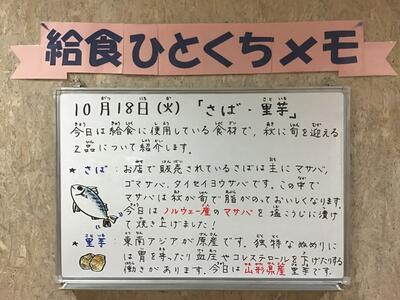 給食ひとくちメモ
10月18日(火) 「さば・里芋」
今日は給食に使用している食材で、秋に旬を迎える
2品について紹介します。
★ さば：お店で販売されているさばは主にマサバ、
ゴマサバ、タイセイヨウサバです。この中で
マサバは秋が旬で脂がのっておいしくなります。
今日はノルウェー産のマサバを塩こうじに漬け
て焼き上げました！
★ 里芋：東南アジアが原産です。独特なぬめりに
は胃を守ったり血圧やコレステロールを下げたりする
働きがあります。今日は山形県産里芋です。